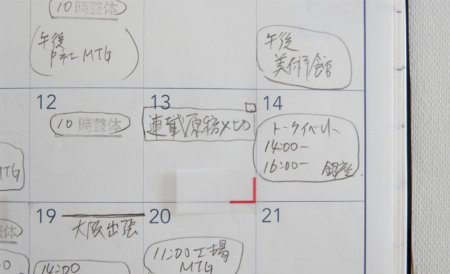 10時整体
午後
P社 MTG
午後
美術館
12
13
14
10時整体
連載原稿〆切
トークイベント
14:00ー
16:00ー 銀座
MTG
19
20
21
大阪出張
11:00 工場
MTG
14:00